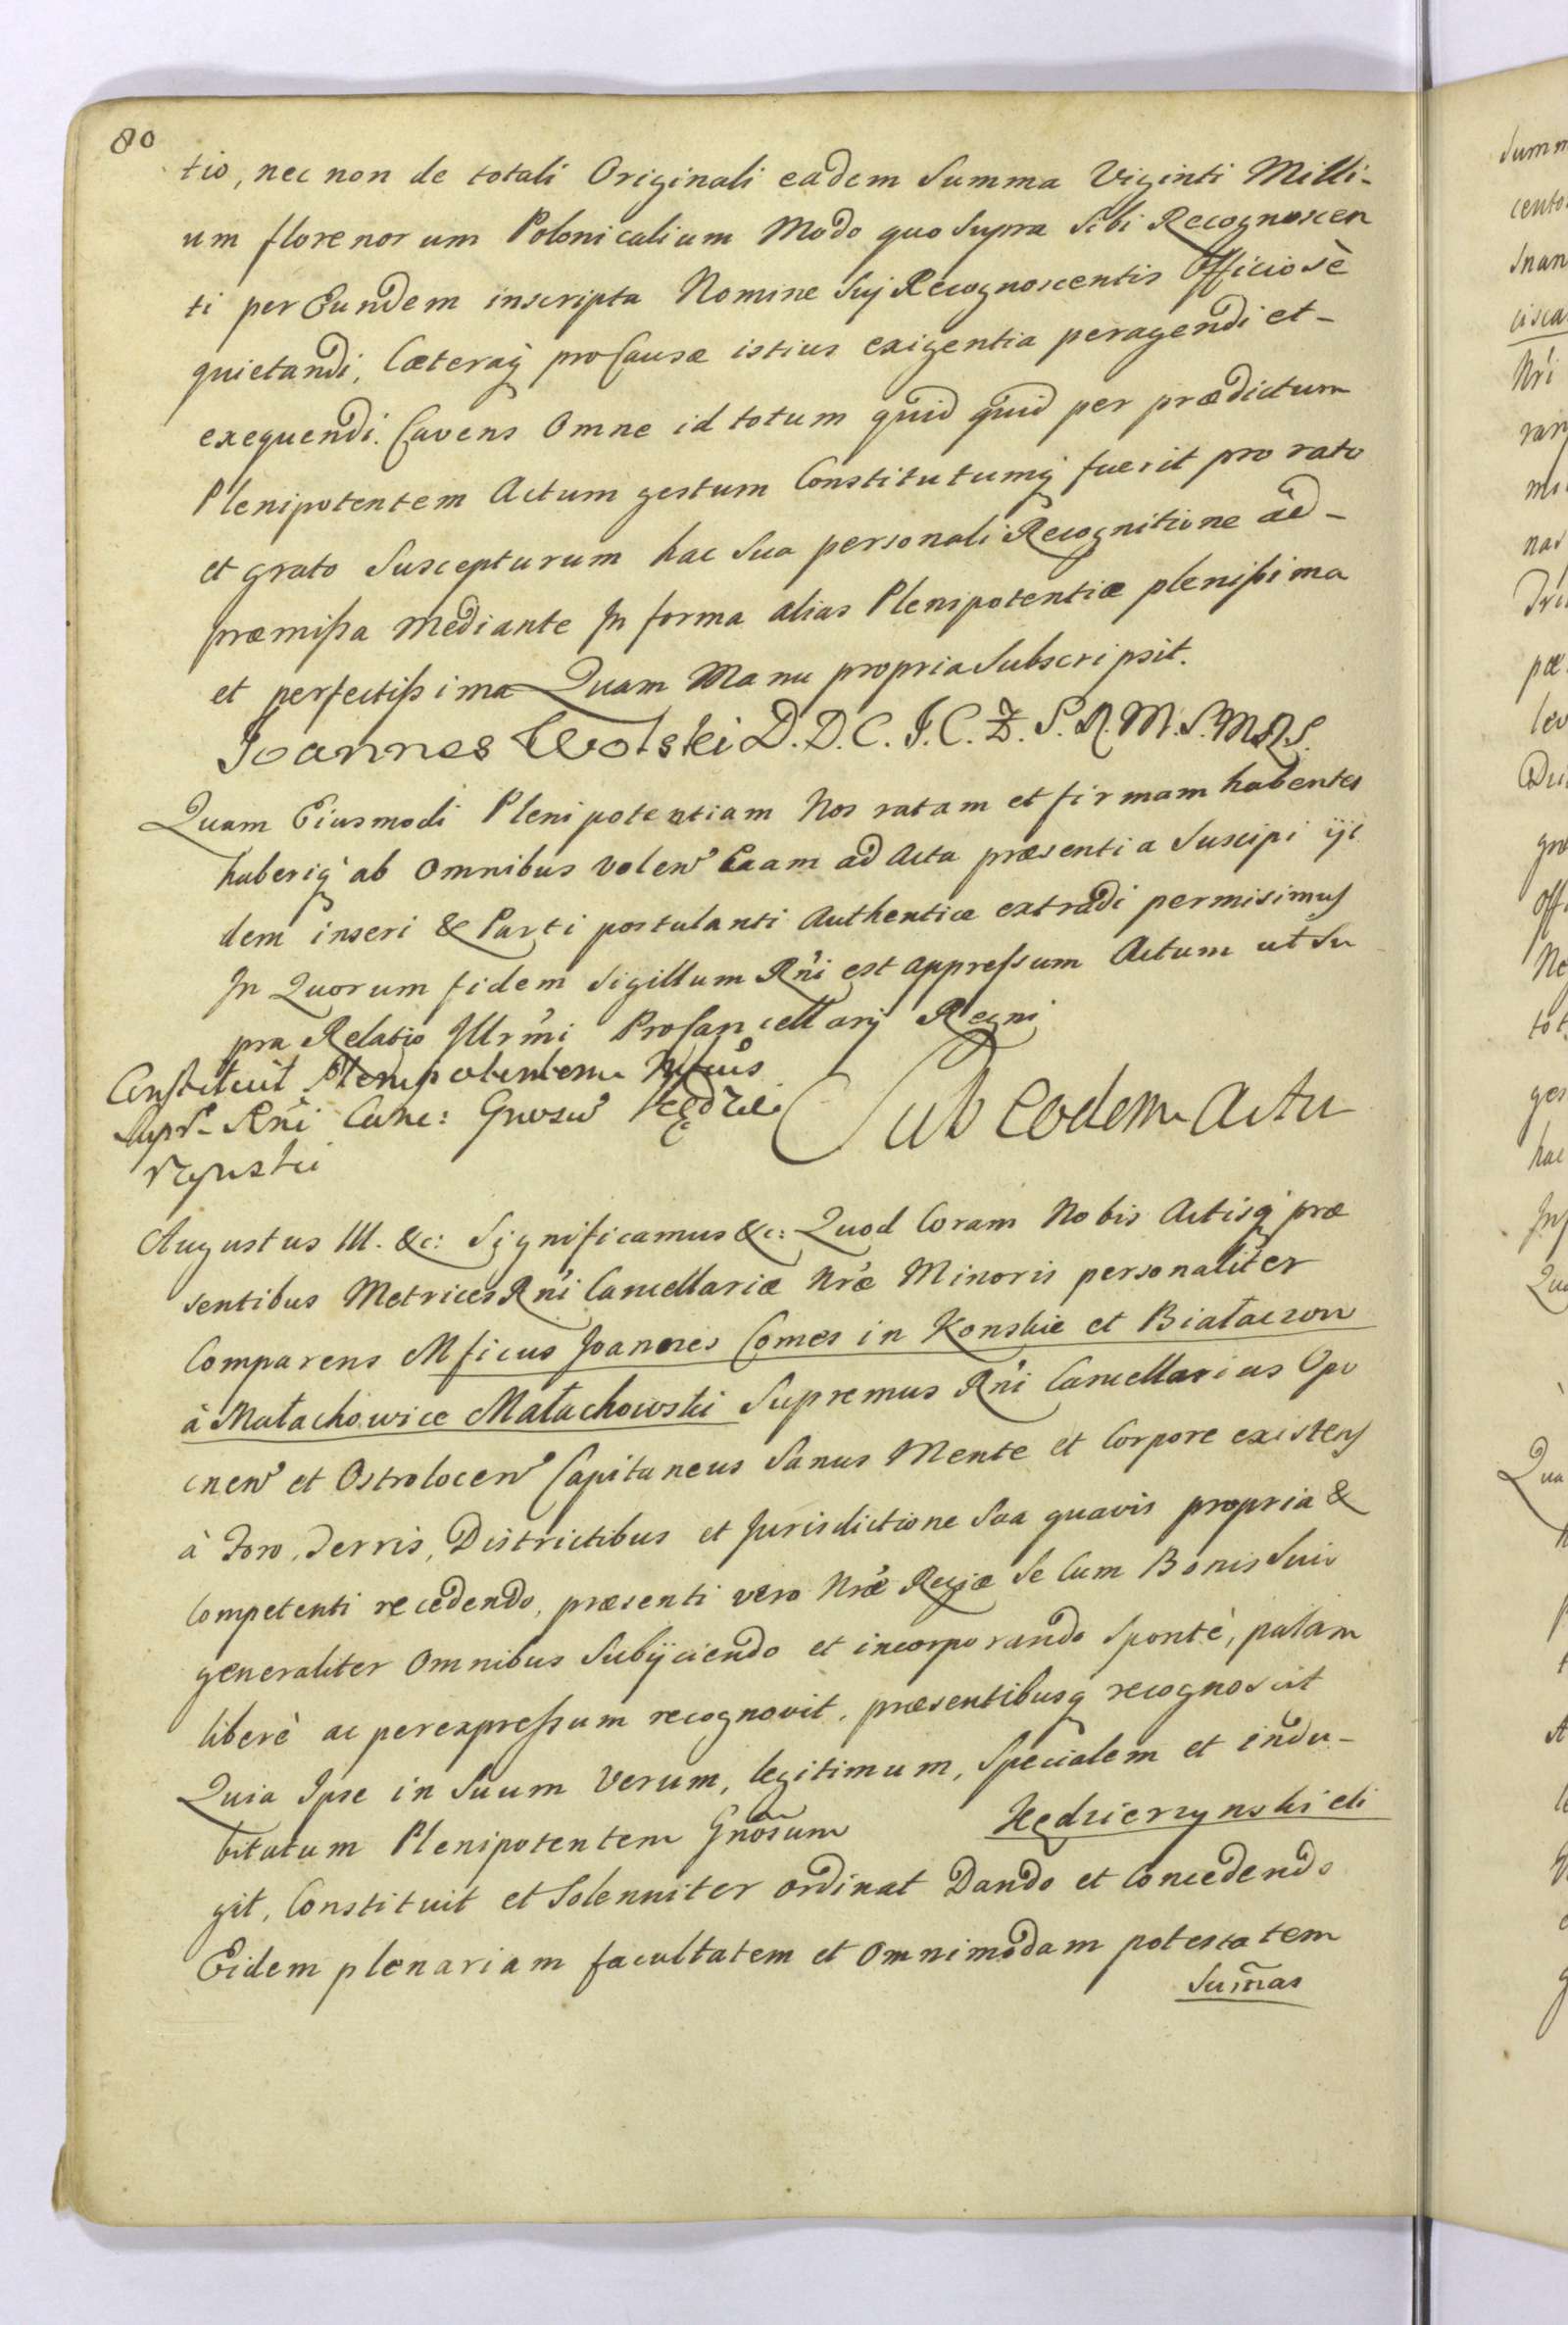 80
tio, nec non de totali Originali eadem Summa Viginti Milli-
um florenorum Polonicalium Modo quo Supra Sibi Recognoscen
ti per Eundem inscripta Nomine Suj Recognoscentis Officiosè
quietandi, Cæteraq̃ pro Causæ istius exigentia peragendi et-
exequendi. Cavens Omne id totum quid quid per prædictum
Plenipotentem Actum gestum Constitutumq̃ fuerit pro rato
et grato Suscepturum hac Sua personali Recognitione ad-
præmißa Mediante In forma alias Plenipotentiæ plenißima
et perfectißima Quam Manu propria Subscripsit.
Joannes Wolski D.D.C.J.C.Z.S.R.M.S.M.R.S.
Quam Eiusmodi Plenipotentiam Nos ratam et firmam habentes
haberiq̃ ab Omnibus volen' Eaam ad Acta præsentia Suscipi ijs
dem inseri & Parti postulanti Authenticæ extradi permisimus
In Quorum fidem Sigillum Rñi est appressum Actum ut Su
pra Relatio Illrm̃i ProCancellarij Regni
Constituit Plenipotentem Mficus
Supr. Rñi Canc: Gnosũ Kędzie
rzynski
Sub eodem Actu
Augustus III. &c: Significamus &c: Quod Coram Nobis Actisq̃ præ
sentibus Metrices Rñi Cancellariæ Nræ Minoris personaliter
Comparens Mficus Joannes Comes in Konskie et Białaczow
à Małachowice Małachowski Supremus Rñi Cancellarius Opo
cnen' et Ostrolocen' Capitaneus Sanus Mente et Corpore existens
à Foro, Terris, Districtibus et Jurisdictione Sua quavis propria &
Competenti recedendo, præsenti vero Nræ Regiæ Se Cum Bonis Suis
generaliter Omnibus Subijciendo et incorporando Spontè, palam
liberè ac per expressum recognovit, præsentibusq̃ recognoscit
Quia Ipse in Suum Verum, legitimum, Specialem et indu-
bitatum Plenipotentem Gnõsum Kędzierzynski eli
git, Constituit et Solenniter ordinat Dando et Concedendo
Eidem plenariam facultatem et Omnimodam potestatem
Sum̃as